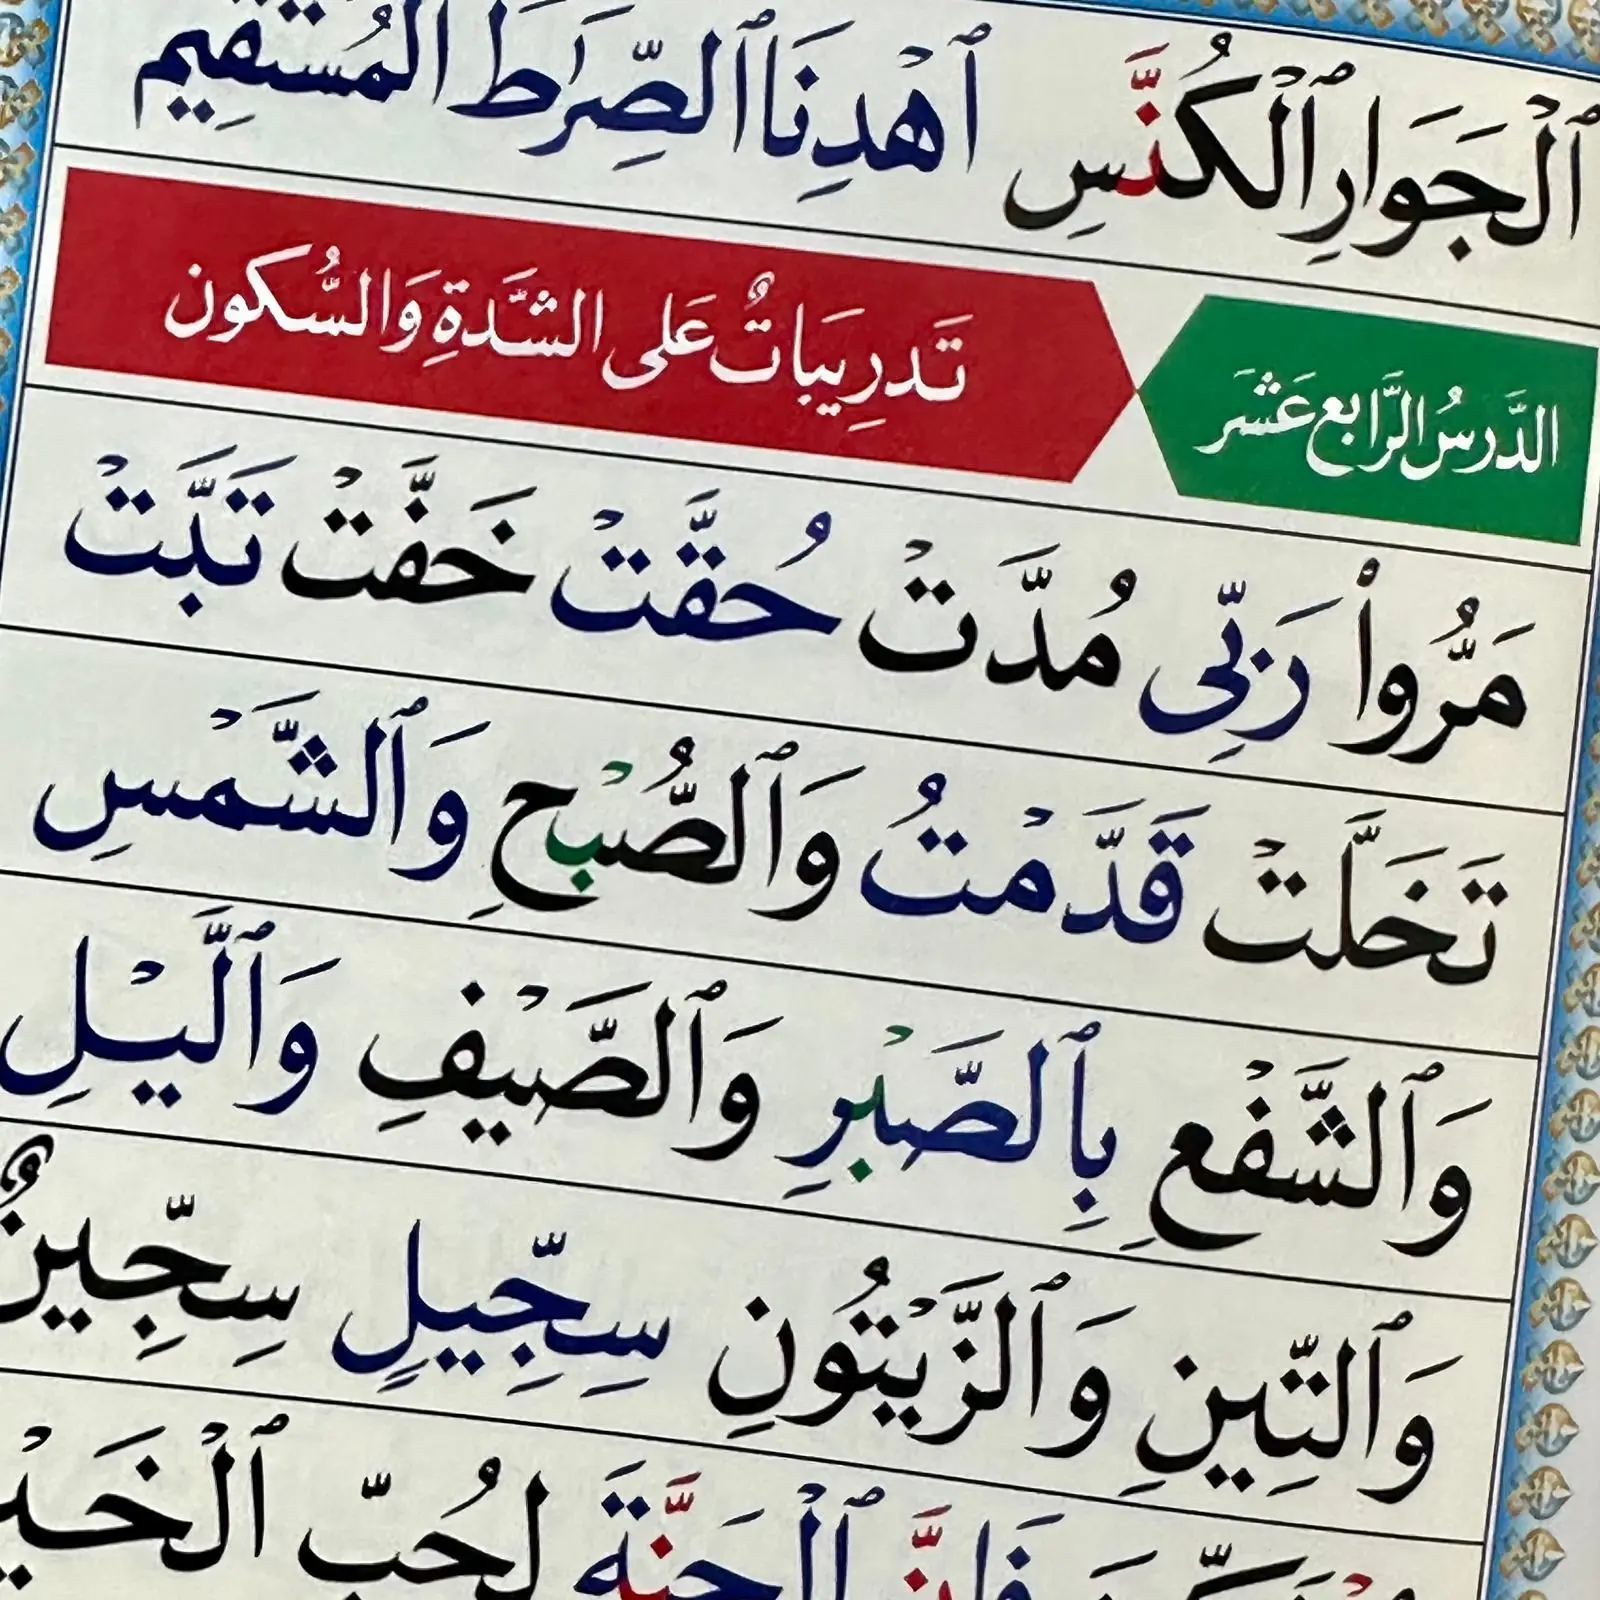 ٱلْجَوَارِ ٱلْكُنَّسِ ٱهْدِنَا ٱلصِّرَٰطَ ٱلْمُسْتَقِيمَ
الدَّرسُ الرَّابع عَشْرَ تَدرِيبَاتٌ عَلى الشَّدةِ وَالسُّكون
مَرُّوا۟ رَبِّى مُدَّتْ حُقَّتْ خَفَّتْ تَبَّتْ
تَخَلَّتْ قَدَّمْتُ وَٱلصُّبْحِ وَٱلشَّمْسِ
وَٱلشَّفْعِ بِٱلصَّبْرِ وَٱلصَّيْفِ وَٱلَّيْلِ
وَٱلتِّينِ وَٱلزَّيْتُونِ سِجِّيلٍ سِجِّينٌ
فَإِنَّ ٱلْجَنَّةَ لِحُبِّ